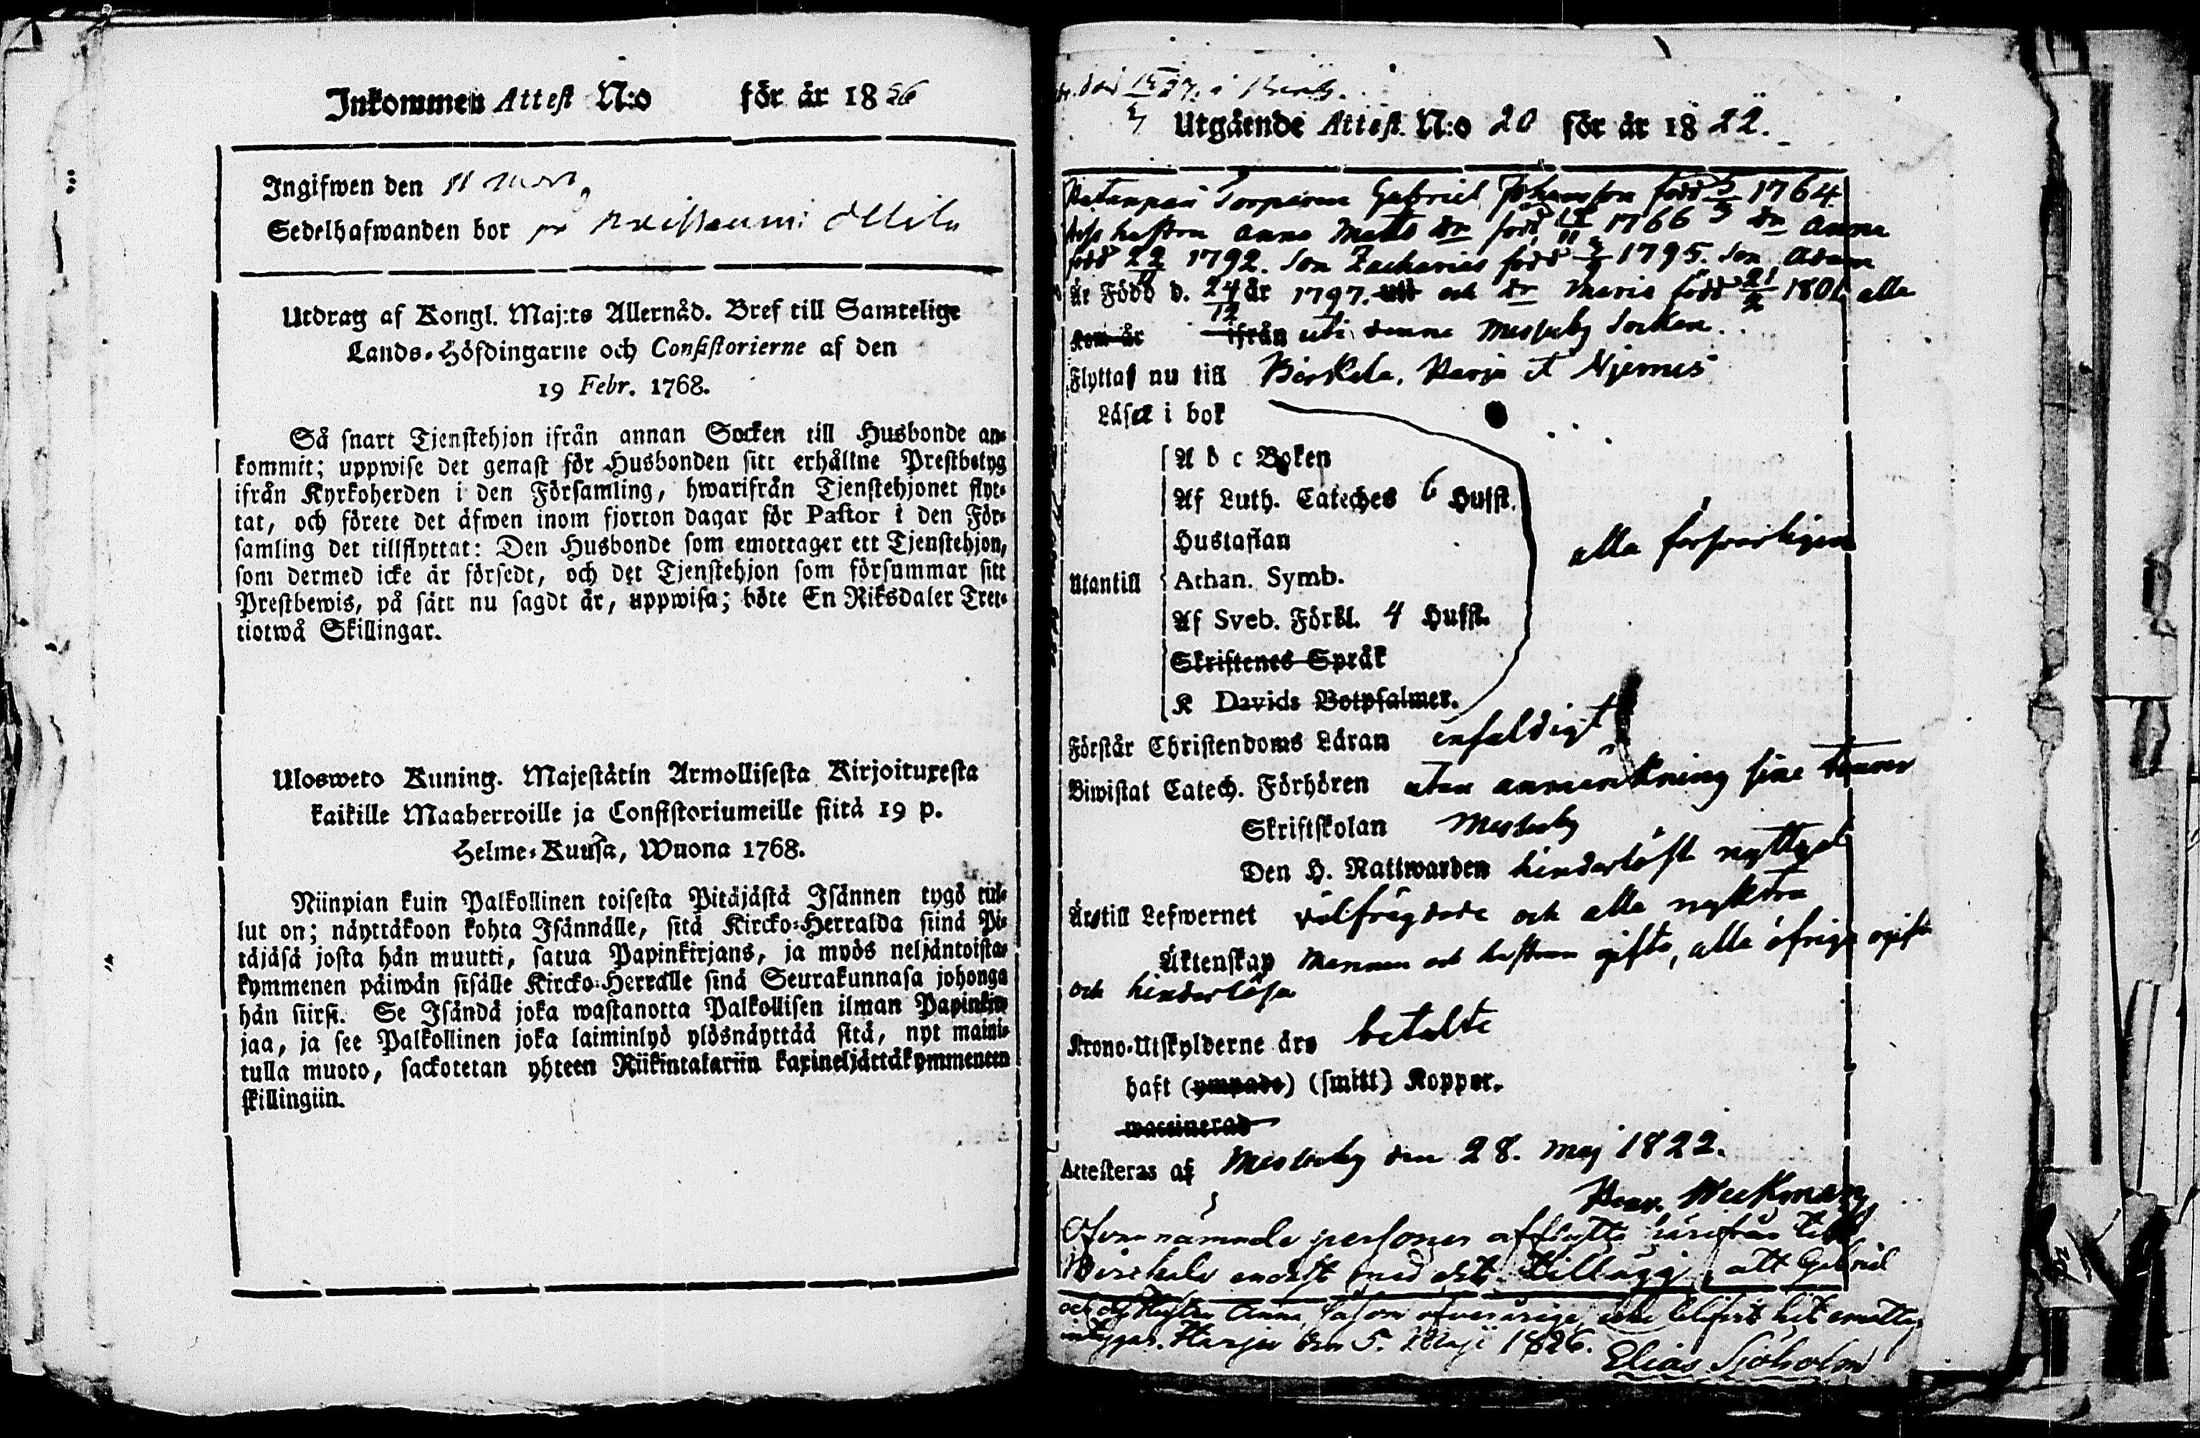 Inkommen Attest N:o för år 1826
Ingifwen den 11
Sedelhafwanden bor
Utdrag af Kongl. Maj:ts Allernåd. Bref till Samtelige
Lands-Höfdingarne och Consistorierne af den
19 Febr. 1768.
Så snart Tjenstehjon ifrån annan Socken till Husbonde an-
kommit; uppwise det genast för Husbonden sitt erhållne Prestbetyg
ifrån Kyrkoherden i den Församling, hwarifrån Tjenstehjonet flyt-
tat, och förete det äfwen inom fjorton dagar för Pastor i den För-
samling det tillflyttat: Den Husbonde som emottager ett Tjenstehjon,
som dermed icke är försedt, och det Tjenstehjon som försummar sitt
Prestbewis, på sätt nu sagdt är, uppwisa; böte En Riksdaler Tret-
tiotwå Skillingar.
Ulosweto Kuning. Majestätin Armollisesta Kirjoituxesta
kaikille Maaherroille ja Consistoriumeille siitä 19 p.
Helme-Kuusa, Wuona 1768.
Niinpian kuin Palkollinen toisesta Pitäjästä Isännen tygö tul-
lut on; näyttäkoon kohta Isännälle, sitä Kircko-Herralda siinä Pi-
täjäsä josta hän muutti, satua Papinkirjans, ja myös neljäntoista-
kymmenen päiwän sisälle Kircko-Herralle sinä Seurakunnasa johonga
hän siirsi. Se Isändä joka wastanotta Palkollisen ilman Papinkir-
jaa, ja see Palkollinen joka laiminlyö ylösnäyttää sitä, nyt maini-
tulla muoto, sackotetan yhteen Riikintalariin kaxineljättäkymmeneen
skillingiin.
Utgående Attest. N:o 20 för år 1822.
Torparen Gabriel Johansson född 5/3 1764
hustru Anna Matts dr född 1766 dr Anna
född 22 1792. Son Zacharias född 1795. Son Adam
Är Född d. 24/12 år 1797. och dr Maria född 21/2 1801 alla
Kom år ifrån uti denna Messuby Socken.
Flyttat nu till Birkala, Harju
Läset i bok
A b c Boken
Af Luth. Cateches 6 Hufst.
Hustaflan
Utantill Athan. Symb.
Af Sveb. Förkl. 4 Hufst.
Skriftenes Språk
K Davids Botpsalmer.
alla försvarligen
Förstår Christendoms Läran enfaldigt
Biwistat Catech. Förhören utan anmärkning sine
Skriftskolan Messuby
Den H. Nattwarden hinderlöst nyttjat
Är till Lefwernet välfrägdade och alla nyktra
Äktenskap Mannen och hustrun gifte, alla öfrige ogifte
och hinderlösa
Krono-Utskylderne äro betalte
haft (ympade) (smitt) Koppor.
waccinerad
Attesteras af Messuby den 28. Maj 1822.
Ofvannämnde personer afflytta härifrån till
Birkala med det tillägg, att Gabriel
och Anna, såsom öfverårige,
Harju den 5. Maji 1826.
Elias Sjöholm